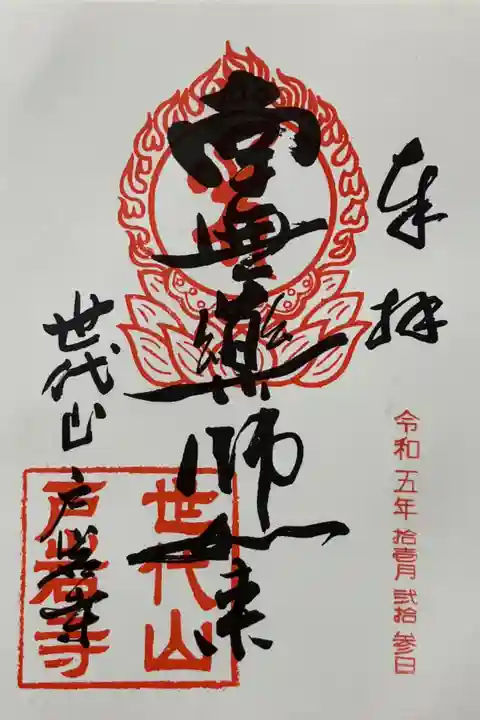 奉拝
令和五年 拾壱月 弐拾 参日
薬師如来
世代山 戸岩寺
世代山
戸岩寺